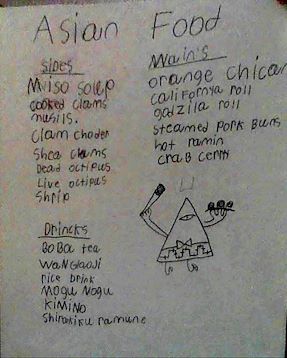 Asian Food
Sides
Miso soup
cooked clams
musils.
clam choder
Shea clams
Dead octipus
Live octipus
Shrip
Drincks
BOBA tea
WANGlaoJi
rice Drink
MOGU NOGU
KIMINO
Shirakiku ramune
Main's
orange chican
californya roll
godzila roll
steamed pork Buns
hot ramin
craB